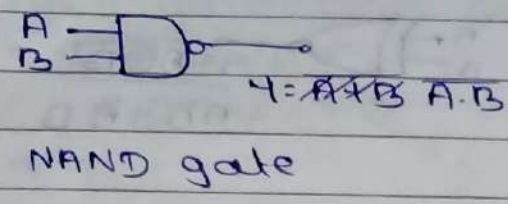 A
B
Y = A+B A.B
NAND gate